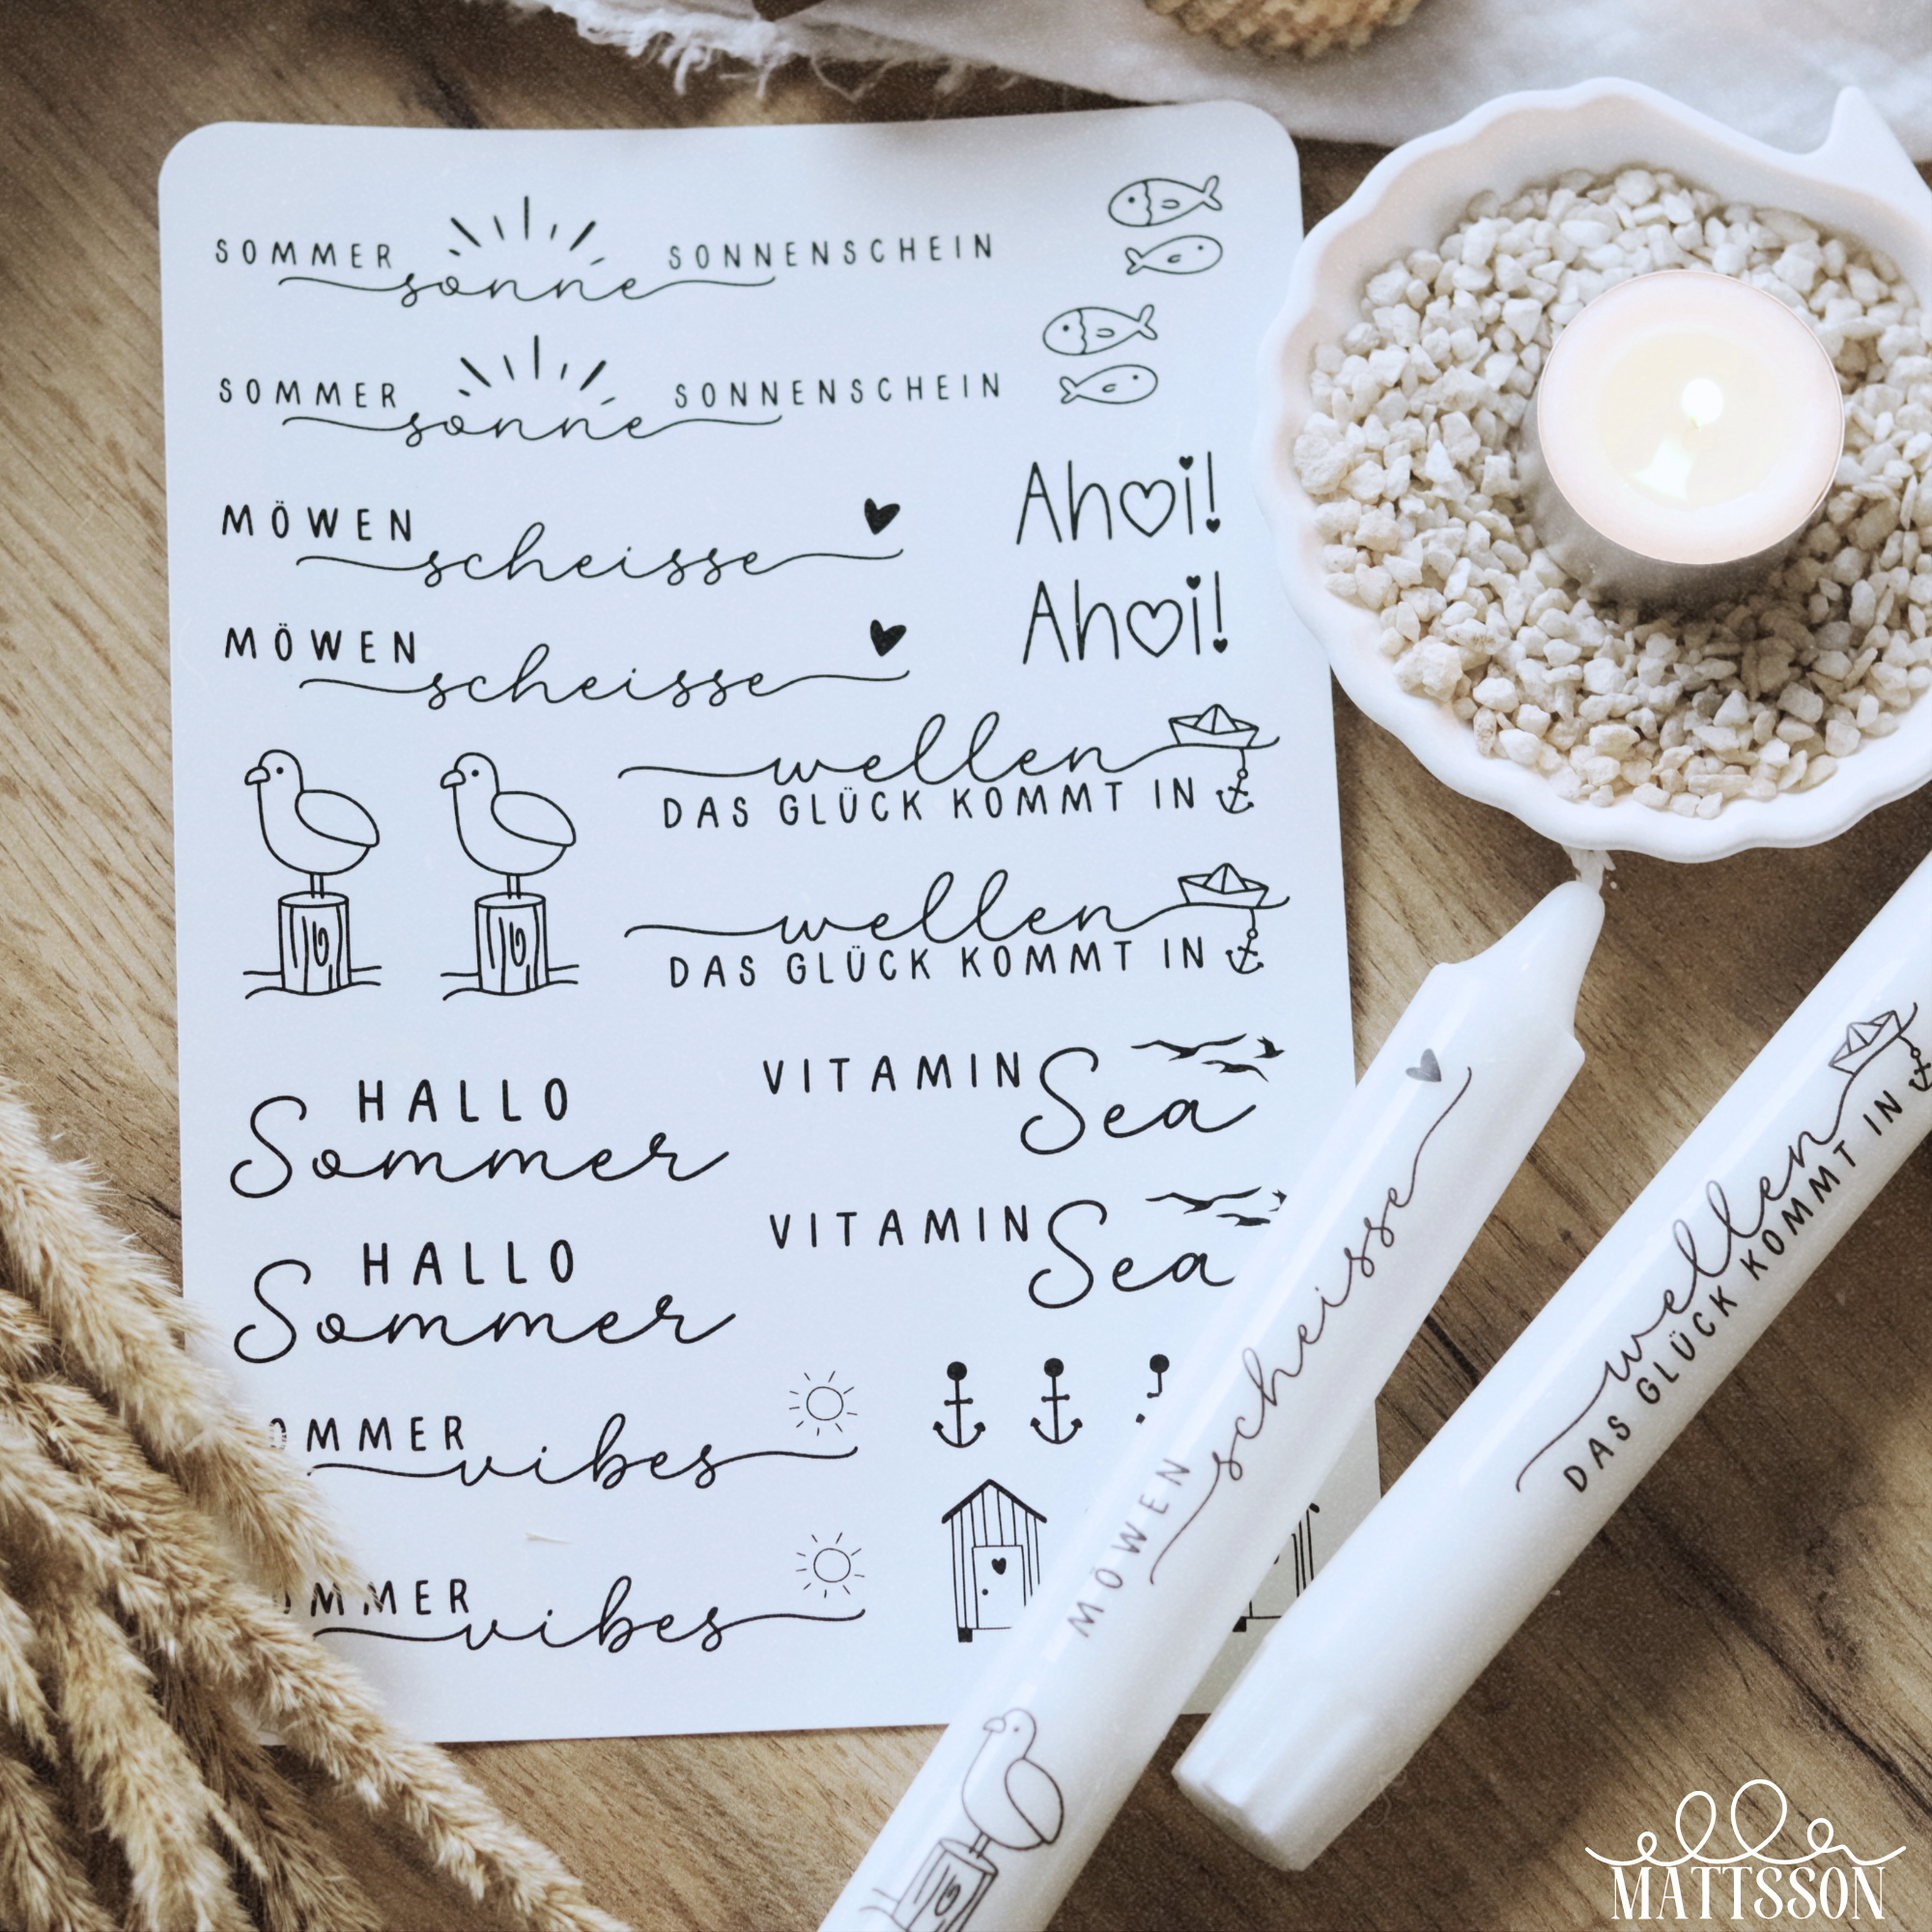 SOMMER sonne SONNENSCHEIN
SOMMER sonne SONNENSCHEIN
MÖWEN scheisse
Ahoi!
MÖWEN scheisse
Ahoi!
wellen
DAS GLÜCK KOMMT IN
wellen
DAS GLÜCK KOMMT IN
HALLO
Sommer
VITAMIN Sea
HALLO
Sommer
VITAMIN Sea
OMMER vibes
MMER vibes
MÖWEN scheisse
wellen
DAS GLÜCK KOMMT IN
ella
MATTSSON